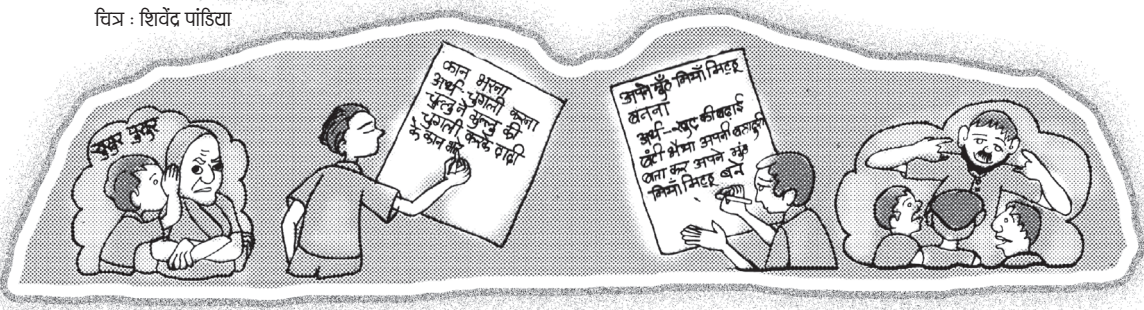 चित्र : शिवेंद्र पांडिया
खुसुर फुसुर
कान भरना
अर्थ चुगली करना
चुन्नू ने मुन्नू की
चुगली करके दादी
के कान भरे
अपने मुँह मियाँ मिट्ठू
बनना
अर्थ -- खुद की बड़ाई
बंटी भैया अपनी बहादुरी
बता कर अपने मुँह
मियाँ मिट्ठू बने